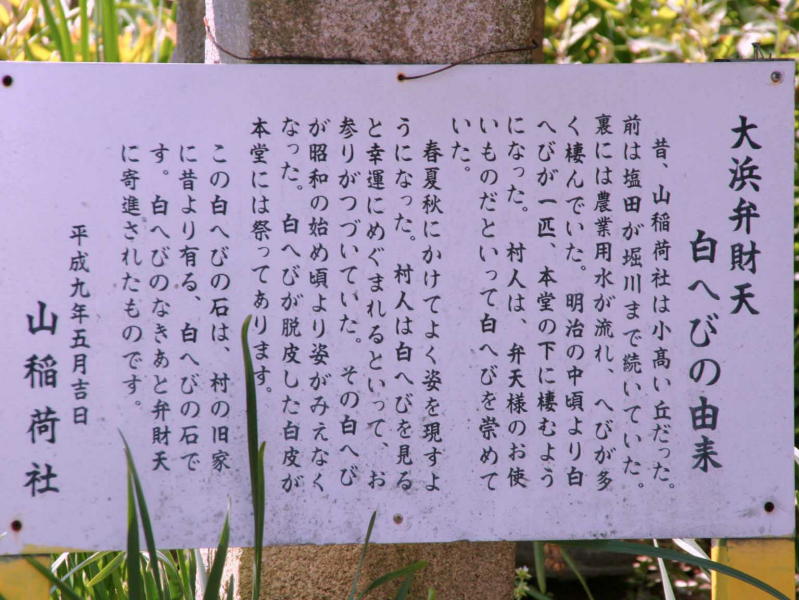 大浜弁財天
白へびの由来
昔、山稲荷社は小髙い丘だった。
前は塩田が堀川まで続いていた。
裏には農業用水が流れ、へびが多
く棲んでいた。明治の中頃より白
へびが一匹、本堂の下に棲むよう
になった。村人は、弁天様のお使
いものだといって白へびを崇めて
いた。
春夏秋にかけてよく姿を現すよ
うになった。村人は白へびを見る
と幸運にめぐまれるといって、お
参りがつづいていた。その白へび
が昭和の始め頃より姿がみえなく
なった。白へびが脱皮した白皮が
本堂には祭ってあります。
この白へびの石は、村の旧家
に昔より有る、白へびの石で
す。白へびのなきあと弁財天
に寄進されたものです。
平成九年五月吉日
山稲荷社